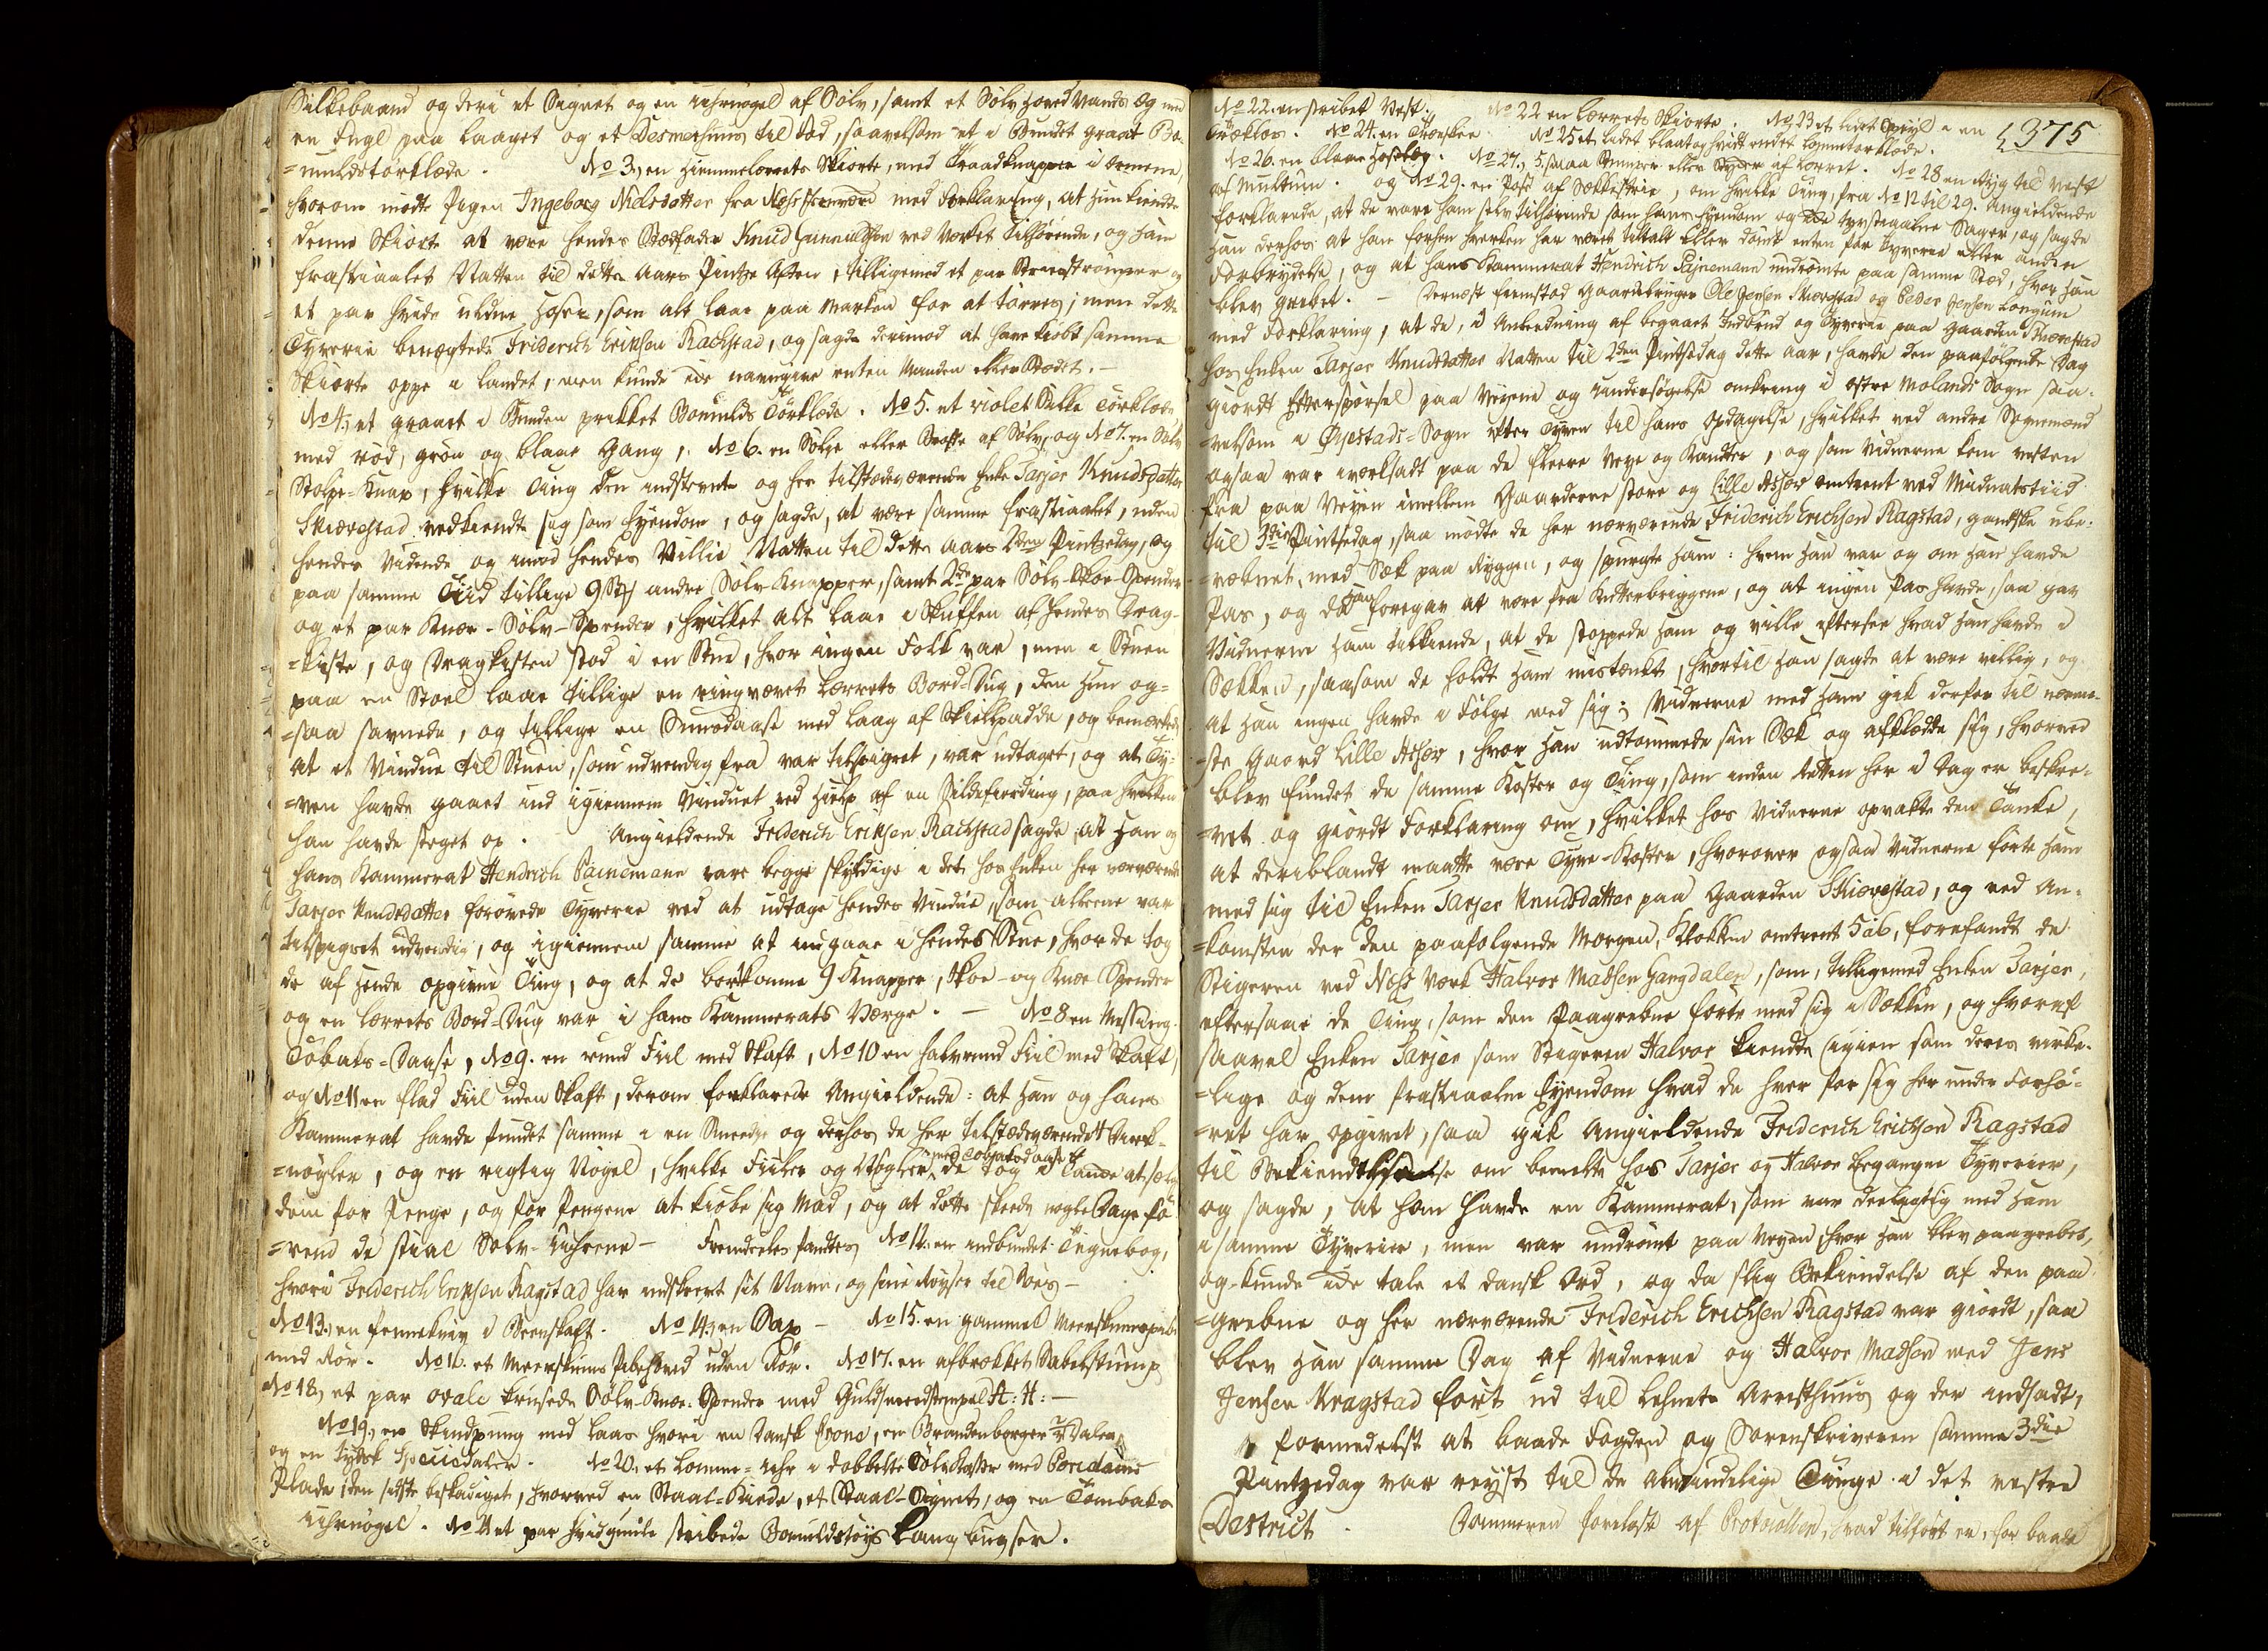 Silkebaand og deri et Signet og en Uhrnøgel af Sølv, samt et Sølv Hoved Vands Eg med
en Fugl paa Laaget og et Desmerhuus til Fod, saavelsom et i Bundet graat Bo-
=muldstørklæde. No 3, en Hiemmelærrets Skiorte, med Traadknapper i Ærmene,
hvorom mødte Pigen Ingeborg Nielsdatter fra Næss Jernværk med Forklaring, at hun kiendte
denne Skiorte at være hendes Stedfader Knud Gunnuldsen ved Værket tilhørende, og ham
frastiaalet Natten til dette Aars Pintze Aften, tilligemed et par Strømper og
et par hvide uldne Hoser, som alt laae paa Marken for at tørres; men dette
Tyverie benægtede Friderich Erikson Rachstad, og sagde derimod at have kiøbt samme
Skiorte oppe i Landet, men kunde ide navngive enten Manden eller Stædet. -
No 4, et graaet i Bunden prikket Bomulds Tørklæde. No 5. et violet Silke Tørklæde
med rød, grøn og blaae Gang, No 6. en Sølje eller Brasse af Sølv, og No 7. en Sølv
Stolpe-Knap, hvilke Ting den indstevnte og her tilstædeværende Enke Tarjer Knudsdatter
Skiævestad vedkiendte sig som Eyendom, og sagde, at være samme frastiaalet, uden
hendes Vidende og imod hendes Villie Natten til dette Aars 2den Pintzedag, og
paa samme Tiid tillige 9 Stk andre Sølv-Knapper, samt 2de par Sølv-Skoe-Spender
og et par Knæ-Sølv-Spender, hvilket alt laae i Skuffen af hendes Drag-
=kiste, og Dragkisten stod i en Stue, hvor ingen Folk var, men i Stuen
paa en Stoel laae tillige en ringværet Lærrets Bord-Dug, den hun og-
=saa savnede, og tillige en Snuusdaase med Laag af Skildpadde, og bemærkede
at et Vindue til Stuen, som udvendig fra var tilspigret, var udtaget, og at Ty-
=ven havde gaaet ind igiennem Vinduet ved Hielp af en Sildefierding, paa hvilken
han havde steget op. Angieldende Friderich Eriksen Rachstad sagde, at han og
hans Kammerat Hendrich Painemann vare begge skyldige i det hos Enken her nærværende
Tarjer Knudsdatter forøvede Tyverie ved at udtage hendes Vindue, som allerne var
tilspigret udvendig, og igiennem samme at indgaae i hendes Stue, hvor de tog
de af hende opgivne Ting, og at de bortkomne 9 Knapper, Skoe- og Knæ Spender
og en Lærrets Bord-Dug var i hans Kammerats Værge. - No 8 en Messing
Tobaks-Daase, No 9. en rund Fiil med Skaft, No 10 en halvrund Fiil med Skaft,
og No 11 en flad Fiil uden Skaft, derom forklarede Angieldende: at han og hans
Kammerat havde fundet samme i en Smedje og derhos de her tilstædeværende 4 Dirk-
=nøgler, og en rigtig Nøgel, hvilke Fiiler og Nøgler med Tobaksdaase de tog i Tanke at sælge
dem for Penge, og for Pengene at kiøbe sig Mad, og at dette skeede nogle Dage fø-
=rend de stial Sølv-Uhrene - Fremdeeles fandtes No 12, en indbundet Tegnebog,
hvori Friderich Eriksen Ragstad har indskrevt sit Navn, og sine Reyser til Søes -
No 13, en Penneknivv i Beenskaft. No 14, en Sax - No 15. en gammel Meerskumspibe
med Rør. No 16. et Meerskums Pibehoved uden Rør. No 17. en afbrækket Sabelstump
No 18, et par ovale krusede Sølv-Knæ-Spender med Guldsmedstempel A: H: -
No 19, en Skindpung med Laas hvori en Dansk Crone, en Brandenborger ⅓ Daler
og en tydsk Speciedaler. No 20, et Lomme-Uhr i dobbelte Sølvkasser med Porcelains
Plade, den sidste beskadiget, hvorved en Staal-Kiede, et Staal-Signet, og en Tombaks
Uhrnøgel. No 21 et par hvidguule stribede Bomuldstøys Lang buxser.
375
No 22. en stribet Vest. No 22 en Lærrets Skiorte. No 23 et lidet Speyl i en
Træklos. No 24. en Træskee. No 25 et lidet blaat og hvidt rudet Lommetørklæde.
No 26. en blaae Hoselæg. No 27, 5 smaa Remser eller Tyser af Lærret. No 28 en Ryg til Vest
af Multum. og No 29. en Pose af Sækkestrie, om hvilke Ting, fra No 12 til 29. Angieldende
forklarede, at de vare ham selv tilhørende som hans Eyendom og ide tyvstiaalne Sager, og sagde
han derhos at han forhen hverken har været tiltalt eller dømt enten for Tyverie eller anden
Forbrydelse, og at hans Kammerat Hendrich Painemann undrømte paa samme Stæd, hvor han
blev grebet. - Dernæst fremstod Gaardebruger Ole Jensen Skiævestad og Peder Jensen Longum
med Forklaring, at de, i Anledning af begaaet Indbrud og Tyverie paa Gaarden Skiævestad
hos Enken Tarjer Knudsdatter Natten til 2den Pintsedag dette Aar, havde den paafølgende Dag
giordt Efterspørsel paa Veyene og Undersøgelse omkring i østre Molands Sogn saa-
=velsom i Øyestads-Sogn efter Tyven til hans Opdagelse, hvilket ved andre Sognemænd
ogsaa var iværksadt paa de fleere Veye og Kandter, og som Vidnerne kom vesten
fra paa Veyen imellem Gaardene store og lille Assev omtrent ved Midnatstiid
til 3die Pintsedag, saa mødte de her nærværende Friderich Erichsen Ragstad, gandske ube-
=væbnet, med Sæk paa Ryggen, og spurgte ham: hvem han var og om han havde
Pas, og da han foregav at være fra Kutterbriggene, og at ingen Pas havde, saa gav
Vidnerne ham tilkiende, at de stoppede ham og ville eftersee hvad han havde i
Sækken, saasom de holdt ham mistænkt, hvortil han sagde at være villig, og
at han ingen havde i Følge med sig; Vidnerne med ham gik derfor til nærme-
ste Gaard Lille Assev, hvor han udtømmede sin Sæk og afklædte sig, hvorved
blev fundet de samme Koster og Ting, som inden Retten her i Dag er beskre-
=vet og giordt Forklaring om, hvilket hos Vidnerne opvakte den Tanke,
at deriblandt maatte være Tyve-Koster, hvorover ogsaa Vidnerne førte ham
med sig til Enken Tarjer Knudsdatter paa Gaarden Skiævestad, og ved An-
=komsten der den paafølgende Morgen, Klokken omtrent 5 a 6, forefandt de
Stigeren ved Næss Værk Halvor Madsen Gangdalen, som, tilligemed Enken Tarjer,
eftersaae de Ting, som den Paagrebne førte med sig i Sækken, og hvoraf
saavel Enken Tarjer som Stigeren Halvor kiendte igien som deres virke-
=lige og dem frastiaalne Eyendom hvad de hver for sig her under Forhø-
=ret har opgivet, saa gik Angieldende Friderich Erichsen Ragstad
til Bekiendtelse om bemelte hos Tarjer og Halvor begangne Tyverier,
og sagde, at han havde en Kammerat, som var deelagtig med ham
i samme Tyverier, men var undrømt paa Veyen, hvor han blev paagrebet,
og kunde ide tale et dansk Ord, og da slig Bekiendelse af den paa-
=grebne og her nærværende Friderich Erichsen Ragstad var giordt, saa
blev han samme Dag af Vidnerne og Halvor Madsen med Jens
Jensen Kragstad ført ud til Lehnets Arresthuus og der indsadt,
formedelst at baade Fogden og Sorenskriveren samme 3die
Pintzedag var reyst til de almindelige Tinge i det vestre
District. Dommeren forelæste af Protocollen, hvad tilført er, for baade